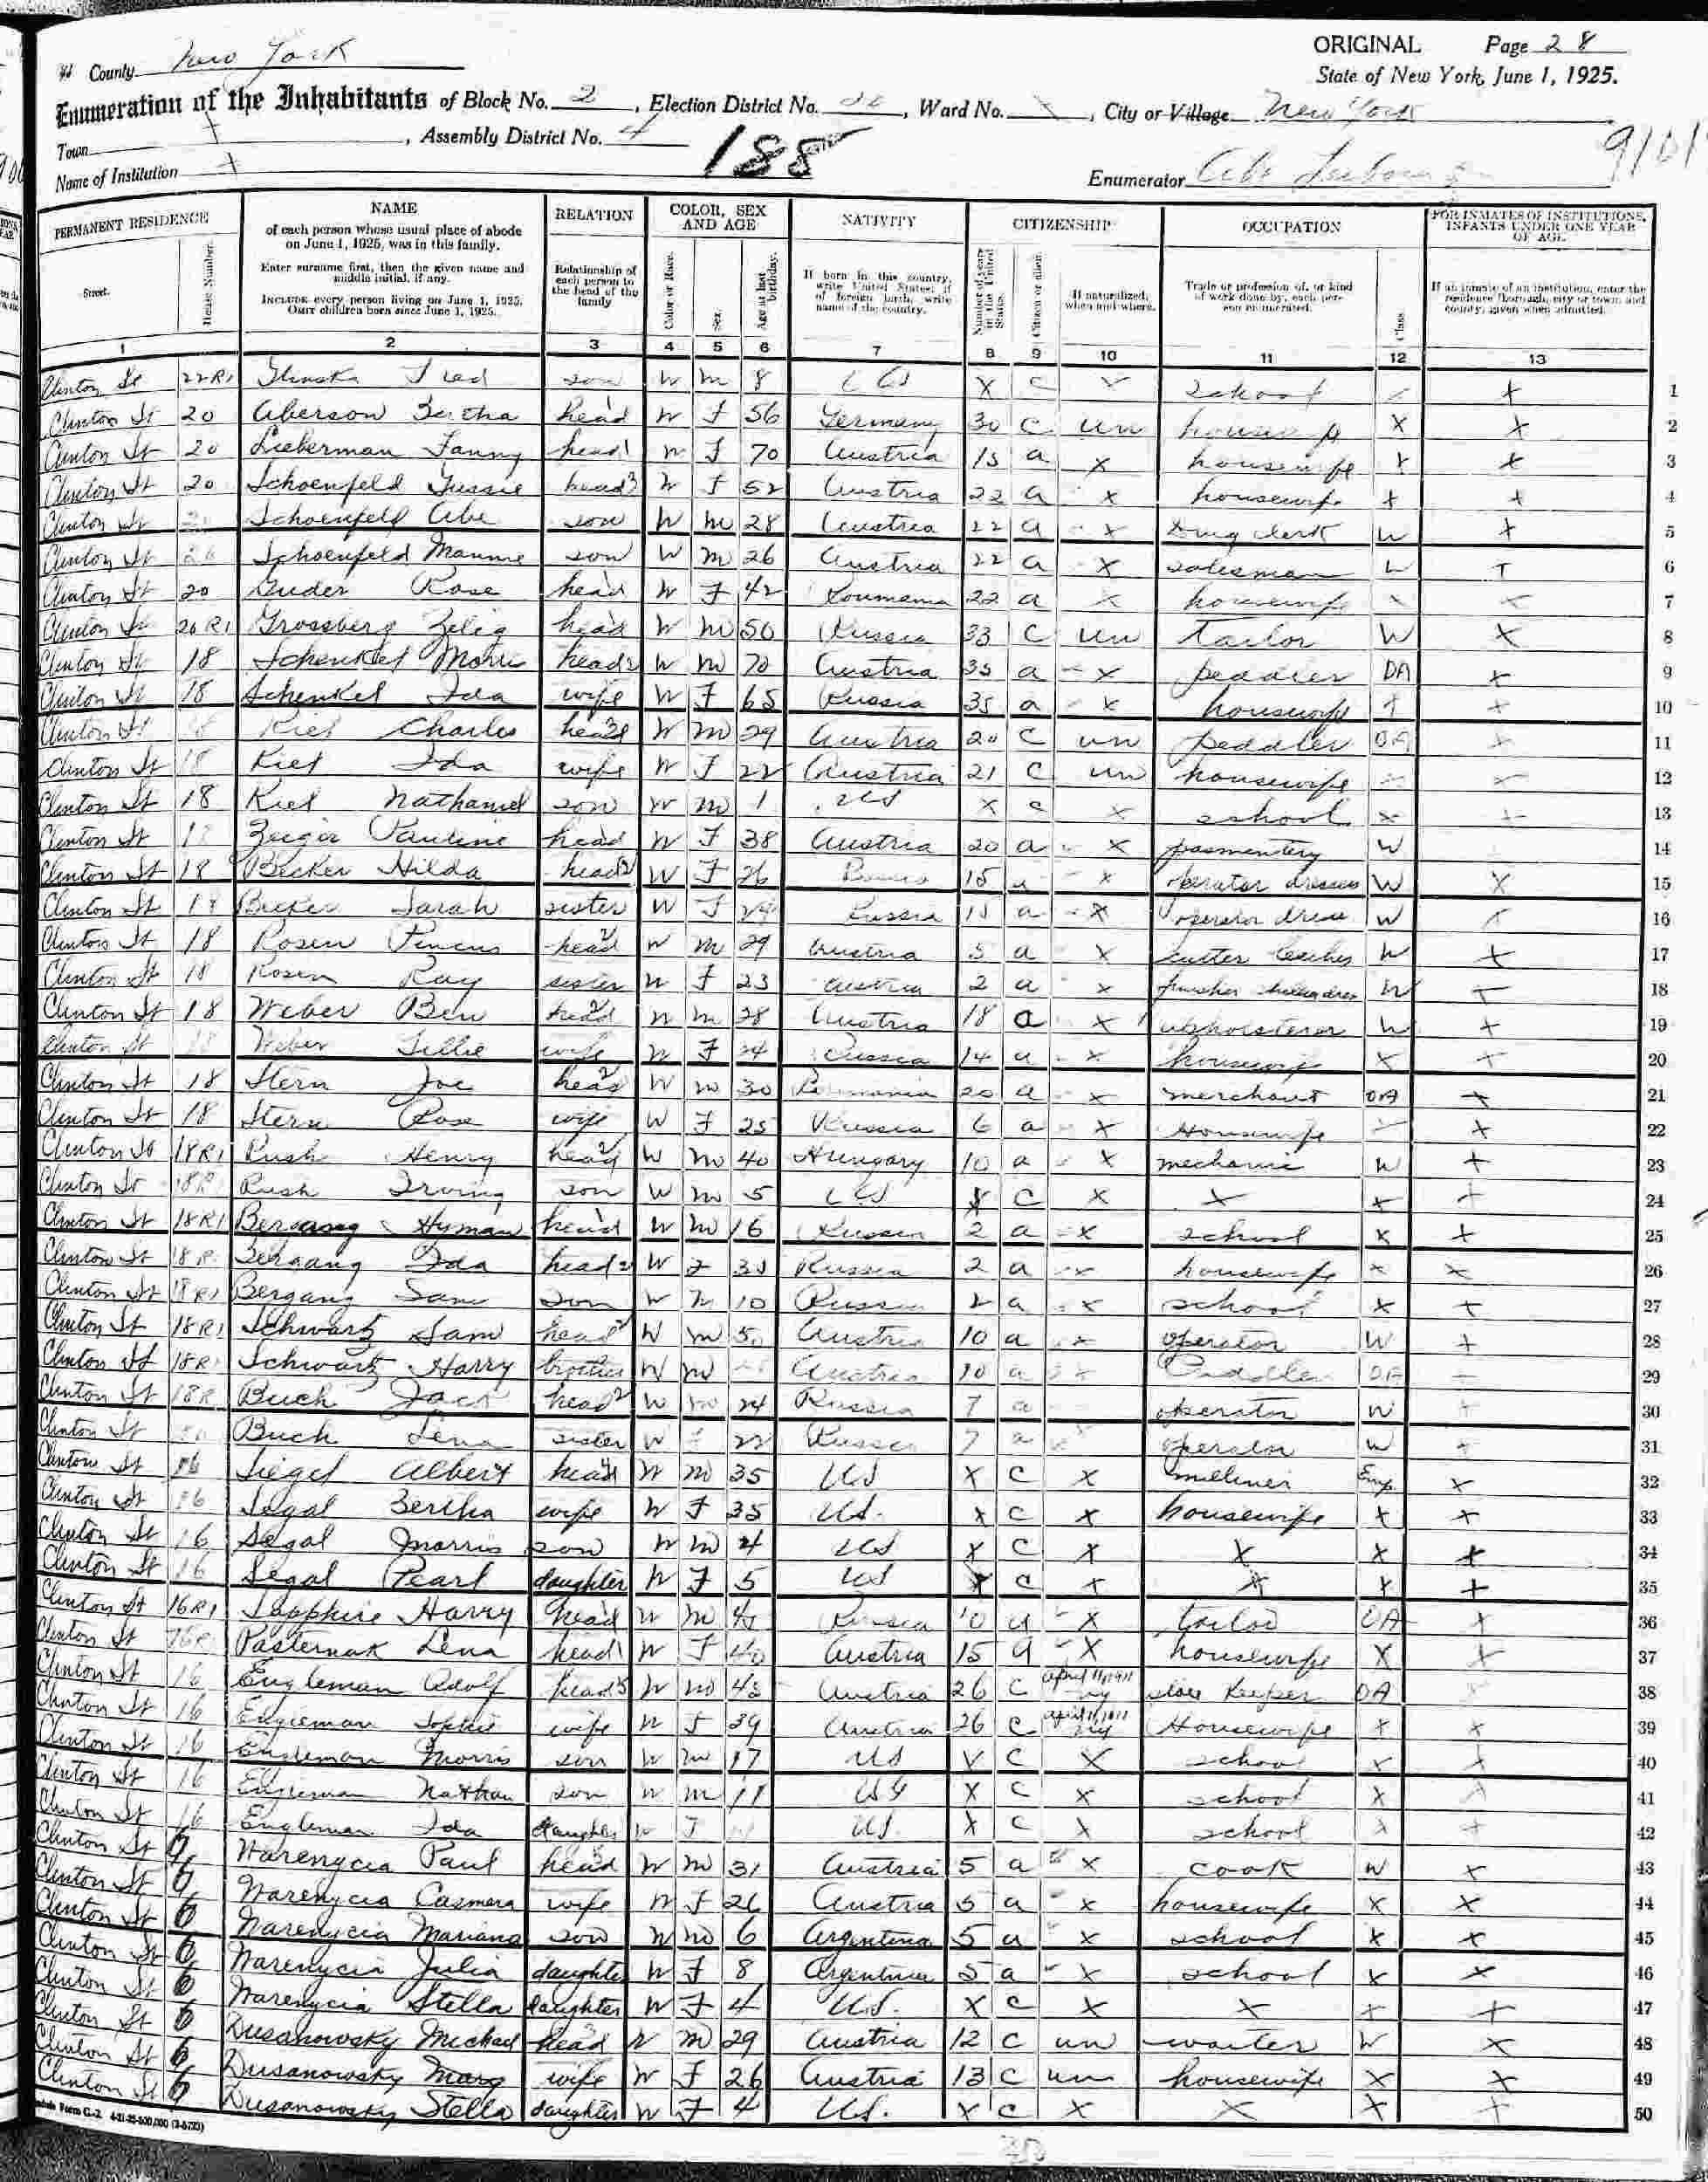 ORIGINAL Page 28
County New York
State of New York, June 1, 1925.
Enumeration of the Inhabitants of Block No. 2, Election District No. , Ward No. X, City or Village New York
Town X, Assembly District No. 4
188
Name of Institution X
Enumerator Abe
PERMANENT RESIDENCE
NAME
of each person whose usual place of abode on June 1, 1925, was in this family.
Enter surname first, then the given name and middle initial, if any.
INCLUDE every person living on June 1, 1925.
OMIT children born since June 1, 1925.
RELATION
Relationship of each person to the head of the family
COLOR, SEX AND AGE
Color or Race.
Sex.
Age at last birthday.
NATIVITY
If born in this country, write United States; if of foreign birth, write name of the country.
CITIZENSHIP
Number of years in the United States.
Citizen or alien.
If naturalized, when and where.
OCCUPATION
Trade or profession of, or kind of work done by, each person enumerated.
Class.
FOR INMATES OF INSTITUTIONS, INFANTS UNDER ONE YEAR OF AGE.
If an inmate of an institution, enter the residence (borough, city or town and county) given when admitted.
Street.
House Number.
1 2 3 4 5 6 7 8 9 10 11 12 13
Clinton St 22R1 Fred son W M 8 US X C school X 1
Clinton St 20 Aberson Bertha head W F 56 Germany 30 C un X X 2
Clinton St 20 Lieberman Fanny head W F 70 Austria 15 a X housewife X X 3
Clinton St 20 Schoenfeld Gussie head W F 52 Austria 22 a X housewife X X 4
Clinton St Schoenfeld Abe son W M 28 Austria 22 a X Drug clerk W X 5
Clinton St 20 Schoenfeld Mannie son W M 26 Austria 22 a X salesman W 6
Clinton St 20 Guder Rose head W F 42 Roumania 22 a X housewife X X 7
Clinton St 20R1 Grossberg Zelig head W M 50 Russia 33 C un Tailor W X 8
Clinton St 18 Schenkel Morris head W M 70 Austria 35 a X peddler OA X 9
Clinton St 18 Schenkel Ida wife W F 65 Russia 35 a X housewife X X 10
Clinton St 18 Kiel Charles head W M 29 Austria 20 C un peddler OA X 11
Clinton St 18 Kiel Ida wife W F 22 Austria 21 C un housewife X X 12
Clinton St 18 Kiel Nathaniel son W M 1 US X C X school X X 13
Clinton St 18 Zeiger Pauline head W F 38 Austria 20 a X pasmentery W 14
Clinton St 18 Becker Hilda head W F 26 Russia 15 a X operator dresses W X 15
Clinton St 18 Becker Sarah sister W F 24 Russia 15 a X operator dress W X 16
Clinton St 18 Rosen Pincus head W M 29 Austria 5 a X cutter W X 17
Clinton St 18 Rosen Ray sister W F 23 Austria 2 a X finisher W X 18
Clinton St 18 Weber Ben head W M 28 Austria 18 a X upholsterer W X 19
Clinton St 18 Weber Tillie wife W F 24 Russia 14 a X housewife X X 20
Clinton St 18 Stern Joe head W M 30 Roumania 20 a X merchant OA X 21
Clinton St 18 Stern Rose wife W F 25 Russia 6 a X Housewife X 22
Clinton St 18R1 Rush Henry head W M 40 Hungary 10 a X mechanic W X 23
Clinton St 18R Rush Irving son W M 5 US X C X X X X 24
Clinton St 18R1 Bergang Hyman head W M 16 Russia 2 a X school X X 25
Clinton St 18R Bergang Ida head W F Russia 2 a X housewife X X 26
Clinton St 18R1 Bergang Sam son W M 10 Russia 2 a X school X X 27
Clinton St 18R1 Schwartz Sam head W M 50 Austria 10 a X operator W X 28
Clinton St 18R1 Schwartz Harry brother W M Austria 10 a X Peddler OA 29
Clinton St 18R Buch Jack head W M 24 Russia 7 a operator W X 30
Clinton St Buch Lena sister W F 22 Russia 7 a X operator W X 31
Clinton St 16 Siegel Albert head W M 35 US X C X milliner Emp X 32
Clinton St 16 Segal Bertha wife W F 35 US. X C X housewife X X 33
Clinton St 16 Segal Morris son W M 4 US X C X X X X 34
Clinton St 16 Segal Pearl daughter W F 5 US X C X X X X 35
Clinton St 16R1 Sapphire Harry head W M Russia 10 a X tailor OA X 36
Clinton St 16R Pasternak Lena head W F 40 Austria 15 a X housewife X X 37
Clinton St 16 Engleman Adolf head W M 45 Austria 26 C April 11, 1911 NY store keeper OA X 38
Clinton St 16 Engleman Sophie wife W F 39 Austria 26 C April 11, 1911 NY Housewife X X 39
Clinton St 16 Engleman Morris son W M 17 US X C X school X X 40
Clinton St 16 Engleman Nathan son W M 11 US X C X school X X 41
Clinton St 16 Engleman Ida daughter W F US X C X school X X 42
Clinton St 6 Warenycia Paul head W M 31 Austria 5 a X cook W X 43
Clinton St 6 Warenycia Casmera wife W F 26 Austria 5 a X housewife X X 44
Clinton St 6 Warenycia Mariano son W M 6 Argentina 5 a X school X X 45
Clinton St 6 Warenycia Julia daughter W F 8 Argentina 5 a X school X X 46
Clinton St 6 Warenycia Stella daughter W F 4 U.S. X C X X X X 47
Clinton St 6 Dusanowsky Michael head W M 29 Austria 12 C un waiter W X 48
Clinton St 6 Dusanowsky Mary wife W F 26 Austria 13 C un housewife X X 49
Clinton St 6 Dusanowsky Stella daughter W F 4 U.S. X C X X X X 50